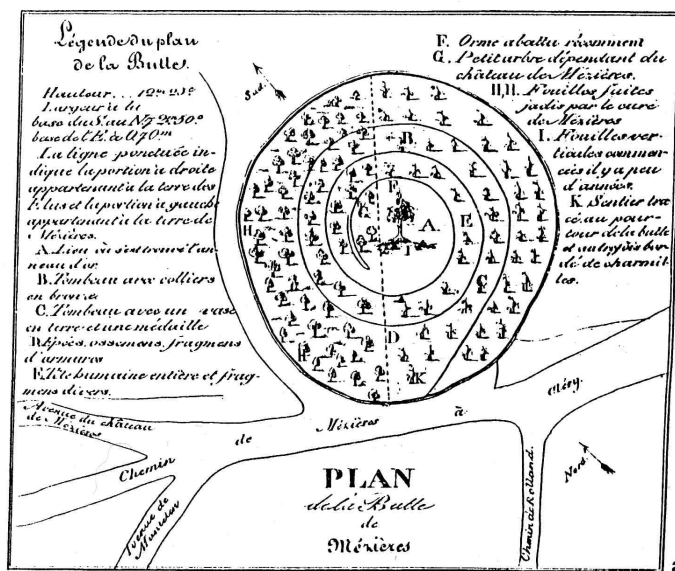 Légende du plan
de la Butte.
Hauteur . . . 12m 25c
Largeur à la
base du S. au N.
base de l'E. à l'O 70m
La ligne ponctuée in-
dique la portion à droite
appartenant à la terre des
Elus et la portion à gauche
appartenant à la terre de
Mézières.
A. Lieu où s'est trouvé l'an-
neau d'or.
B. Tombeau avec colliers
en bronze
C. Tombeau avec un vase
en terre et une médaille
D. Epées, ossemens, fragmens
d'armures
E. Tête humaine entière et frag-
mens divers.
F. Orme abattu récemment
G. Petit arbre dépendant du
château de Mézières.
H, H. Fouilles faites
jadis par le curé
de Mézières
I. Fouilles ver-
ticales commen-
cées il y a peu
d'années.
K. Sentier tra-
cé au pour-
tour de la butte
et autrefois bor-
dé de charmil-
les.
Sud.
B
F
G
A
E
H
I
C
D
H
K
Avenue du château
de Mézières
Chemin de Mézières à Cléry.
Avenue de
Chemin de Rolland.
Nord.
PLAN
de la Butte
de
Mézières